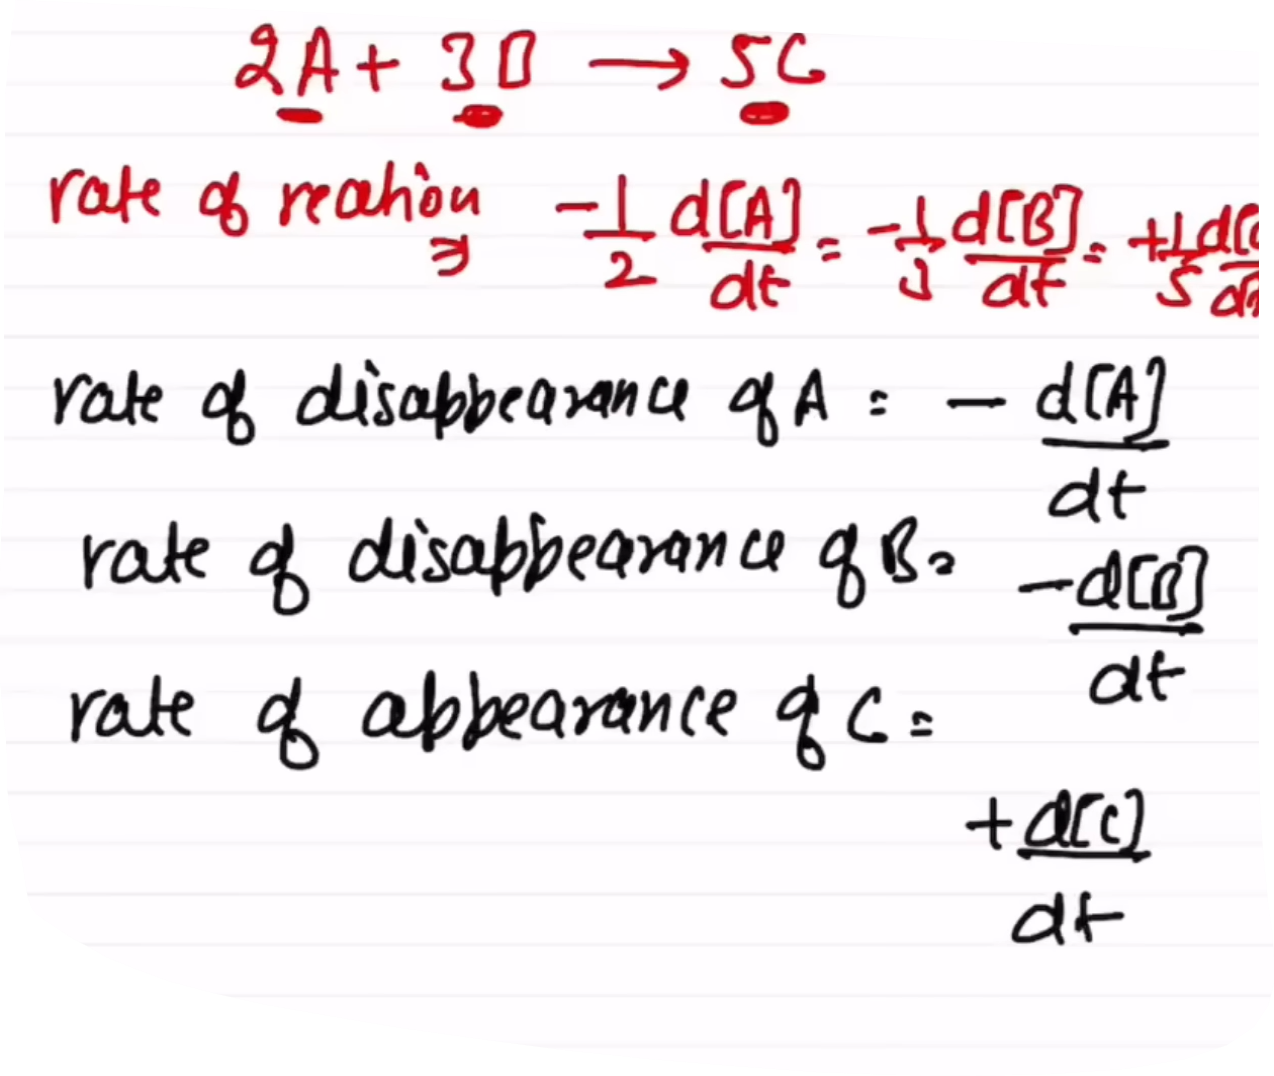 2A + 3B → 5C
rate of reaction ⇒ -1/2 d[A]/dt = -1/3 d[B]/dt = +1/5 d[C/dt
rate of disappearance of A = - d[A]/dt
rate of disappearance of B = -d[B]/dt
rate of appearance of C =
+d[C]/dt